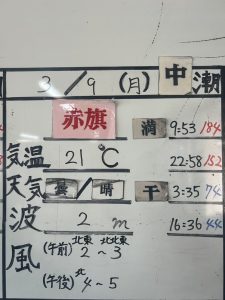 3/9 (月) 中 潮
赤旗 満 9:53 184
気温 21℃ 22:58 152
天気 曇/晴 干 3:35 74
波 2m 16:36 44
風 (午前) 北東 2~3 北北東
(午後) 北 4~5